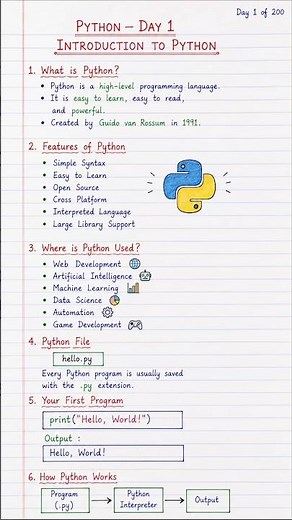 Day 1 of 200
Python – Day 1
Introduction to Python
1. What is Python?
• Python is a high-level programming language.
• It is easy to learn, easy to read,
and powerful.
• Created by Guido van Rossum in 1991.
2. Features of Python
• Simple Syntax
• Easy to Learn
• Open Source
• Cross Platform
• Interpreted Language
• Large Library Support
3. Where is Python Used?
• Web Development
• Artificial Intelligence
• Machine Learning
• Data Science
• Automation
• Game Development
4. Python File
hello.py
Every Python program is usually saved
with the .py extension.
5. Your First Program
print("Hello, World!")
Output :
Hello, World!
6. How Python Works
Program
(.py)
Python
Interpreter
Output